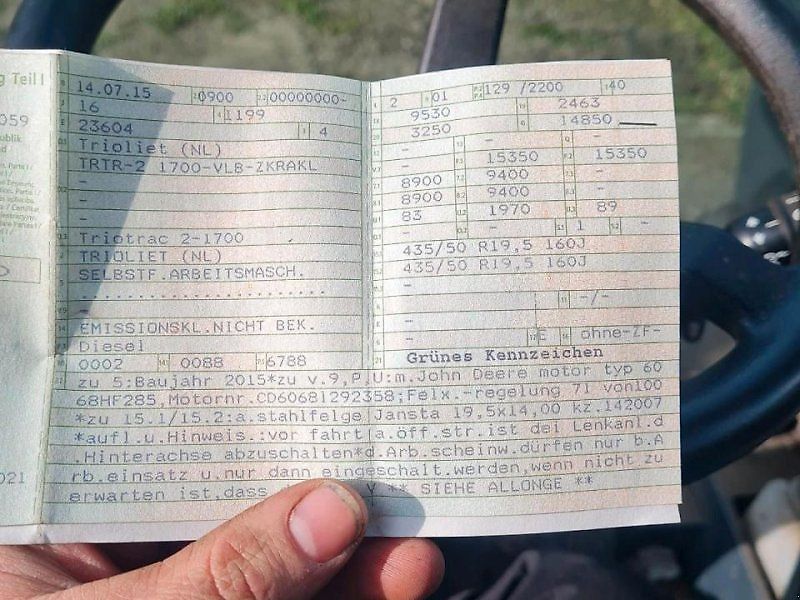 g Teil I
059
publik
021
14.07.15 0900 00000000-
16 1199
23604 4
Trioliet (NL)
TRTR-2 1700-VLB-ZKRAKL
-
-
-
Triotrac 2-1700
TRIOLIET (NL)
SELBSTF.ARBEITSMASCH.
-
EMISSIONSKL.NICHT BEK.
Diesel
0002 0088 6788
2 01 129 /2200 40
9530 2463
3250 14850
- - -
- 15350 15350
8900 9400 -
8900 9400 -
83 1970 89
- 1 -
435/50 R19,5 160J
435/50 R19,5 160J
-
- -/-
-
- E ohne-ZF-
Grünes Kennzeichen
zu 5:Baujahr 2015*zu v.9,P.U:m.John Deere motor typ 60
68HF285,Motornr.CD6068I292358;Felx.-regelung 71 von100
*zu 15.1/15.2:a.stahlfelge Jansta 19,5x14,00 kz.142007
*aufl.u.Hinweis.:vor fahrt a.öff.str.ist dei Lenkanl.d
.Hinterachse abzuschalten*d.Arb.scheinw.dürfen nur b.A
rb.einsatz u.nur dann eingeschalt.werden,wenn nicht zu
erwarten ist,dass V ** SIEHE ALLONGE **